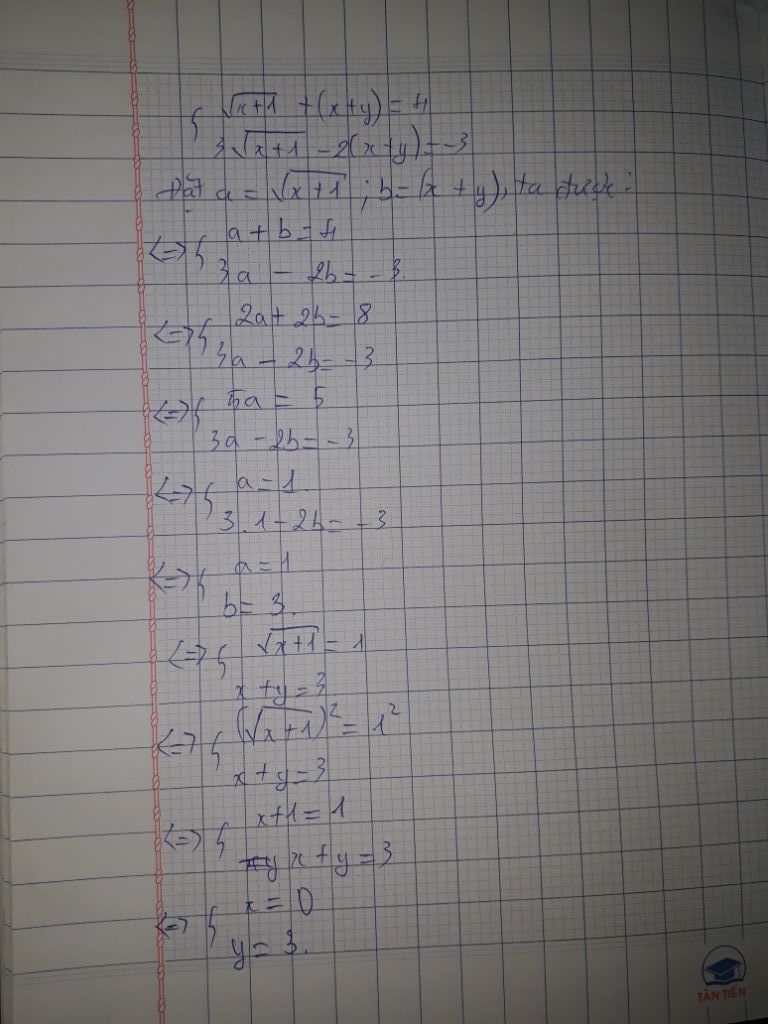 { √x+1 + (x+y) = 4
3√x+1 - 2(x+y) = -3
Đặt a = √x+1 ; b = (x + y), ta được :
<=> { a + b = 4
3a - 2b = -3.
<=> { 2a + 2b = 8
3a - 2b = -3
<=> { 5a = 5
3a - 2b = -3
<=> { a = 1.
3 . 1 - 2b = -3
<=> { a = 1
b = 3.
<=> { √x+1 = 1
x + y = 3
<=> { (√x+1)² = 1²
x + y = 3
<=> { x+1 = 1
x + y = 3
<=> { x = 0
y = 3.
TÂN TIẾN